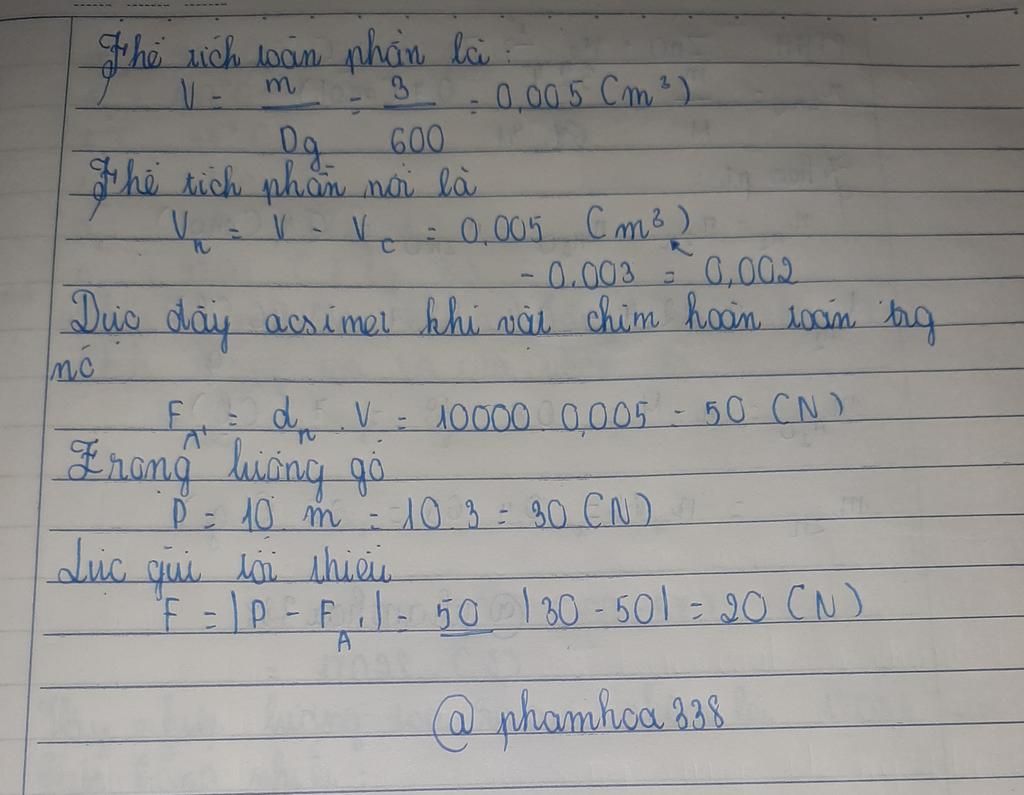 Thể tích toàn phần là:
V = m / Dg = 3 / 600 = 0,005 (m³)
Thể tích phần nổi là
Vn = V - Vc = 0,005 (m³)
- 0,003 = 0,002
Lực đẩy acsimet khi vật chìm hoàn toàn trg
nc
FA' = dn . V = 10000 0,005 = 50 (N)
Trọng lượng gỗ
P = 10 m = 10 3 = 30 (N)
Lực gửi tối thiểu
F = |P - FA'| = 50 |30 - 50| = 20 (N)
@phamhoa338